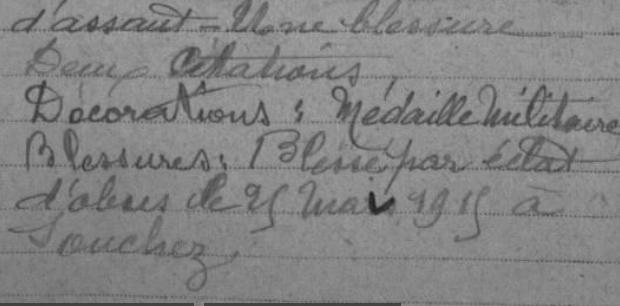 d'assaut - Une blessure
Deux Citations,
Décorations : Médaille Militaire
Blessures : Blessé par éclat
d'obus le 25 Mai 1915 à
Souchez,